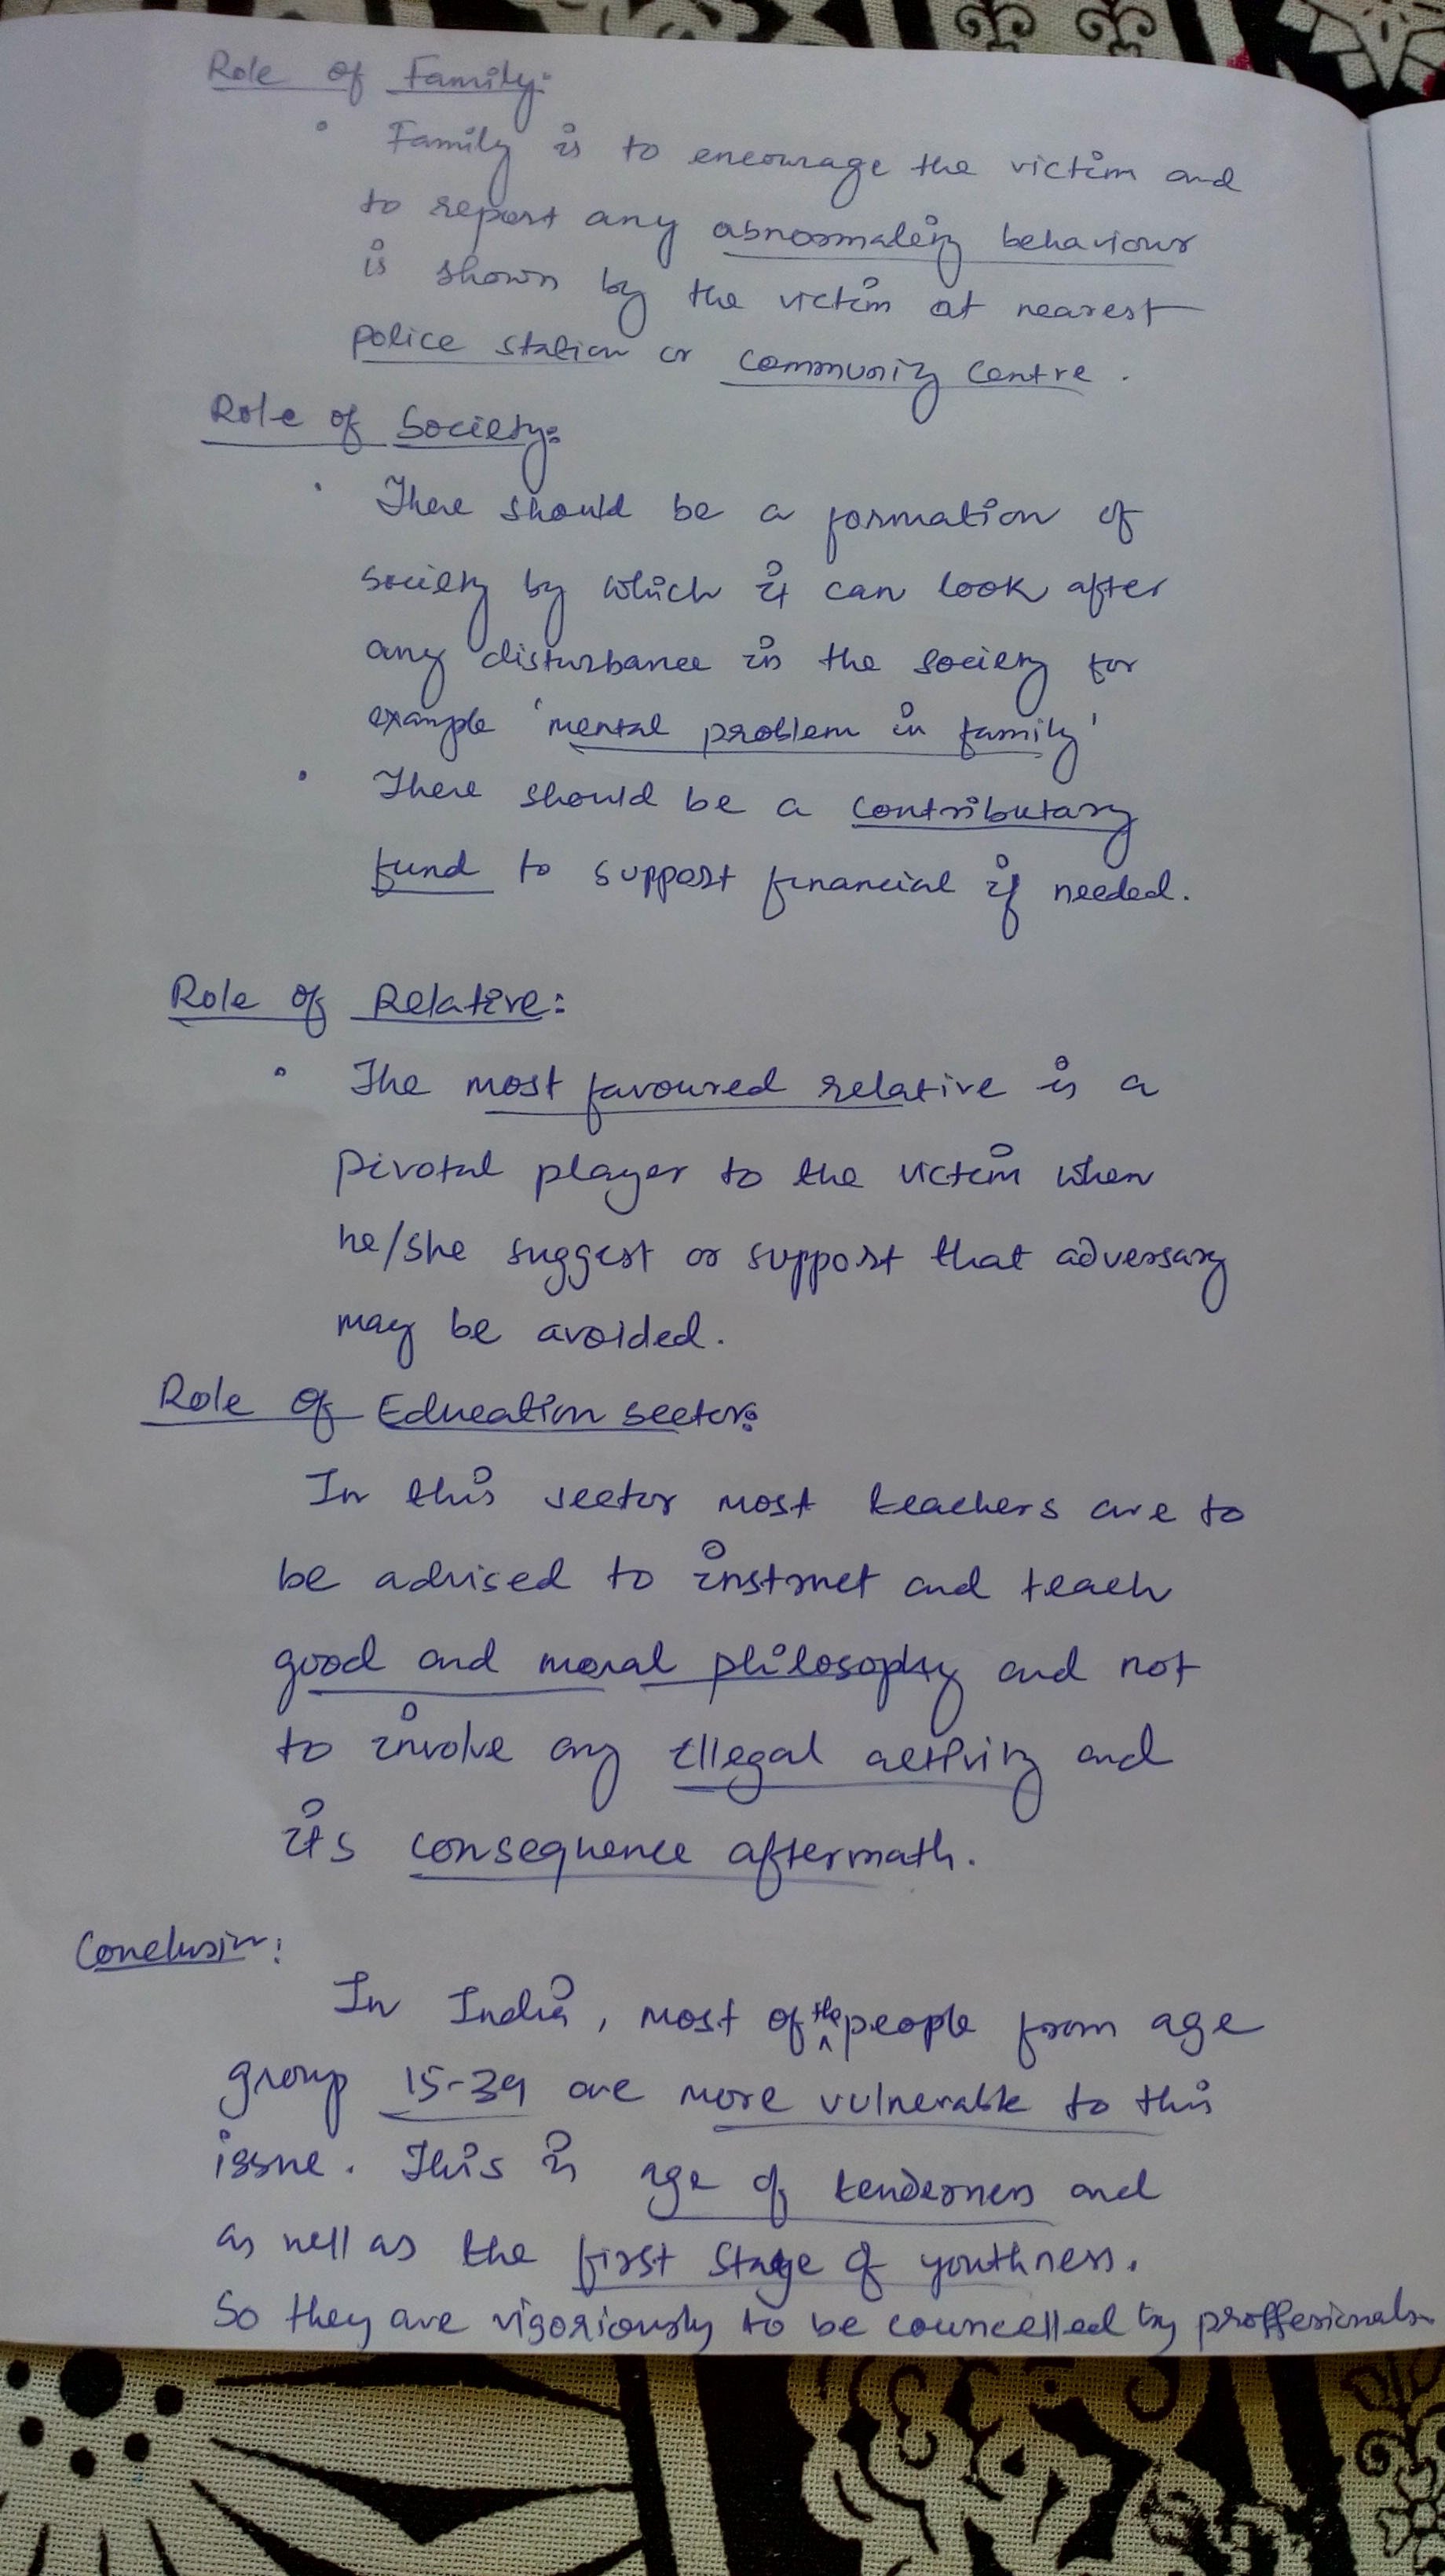 Role of Family:
• Family is to encourage the victim and
to report any abnormality behaviour
is shown by the victim at nearest
police station or community centre.
Role of Society:
• There should be a formation of
society by which it can look after
any disturbance in the society for
example 'mental problem in family'
• There should be a contributary
fund to support financial if needed.
Role of Relative:
• The most favoured relative is a
pivotal player to the victim when
he/she suggest or support that adversary
may be avoided.
Role of Education sector:
In this sector most teachers are to
be advised to instruct and teach
good and moral philosophy and not
to involve any illegal activity and
its consequence aftermath.
Conclusion:
In India, most of the people from age
group 15-39 are more vulnerable to this
issue. This is age of tenderness and
as well as the first stage of youthness.
So they are vigoriously to be councelled by proffesionals